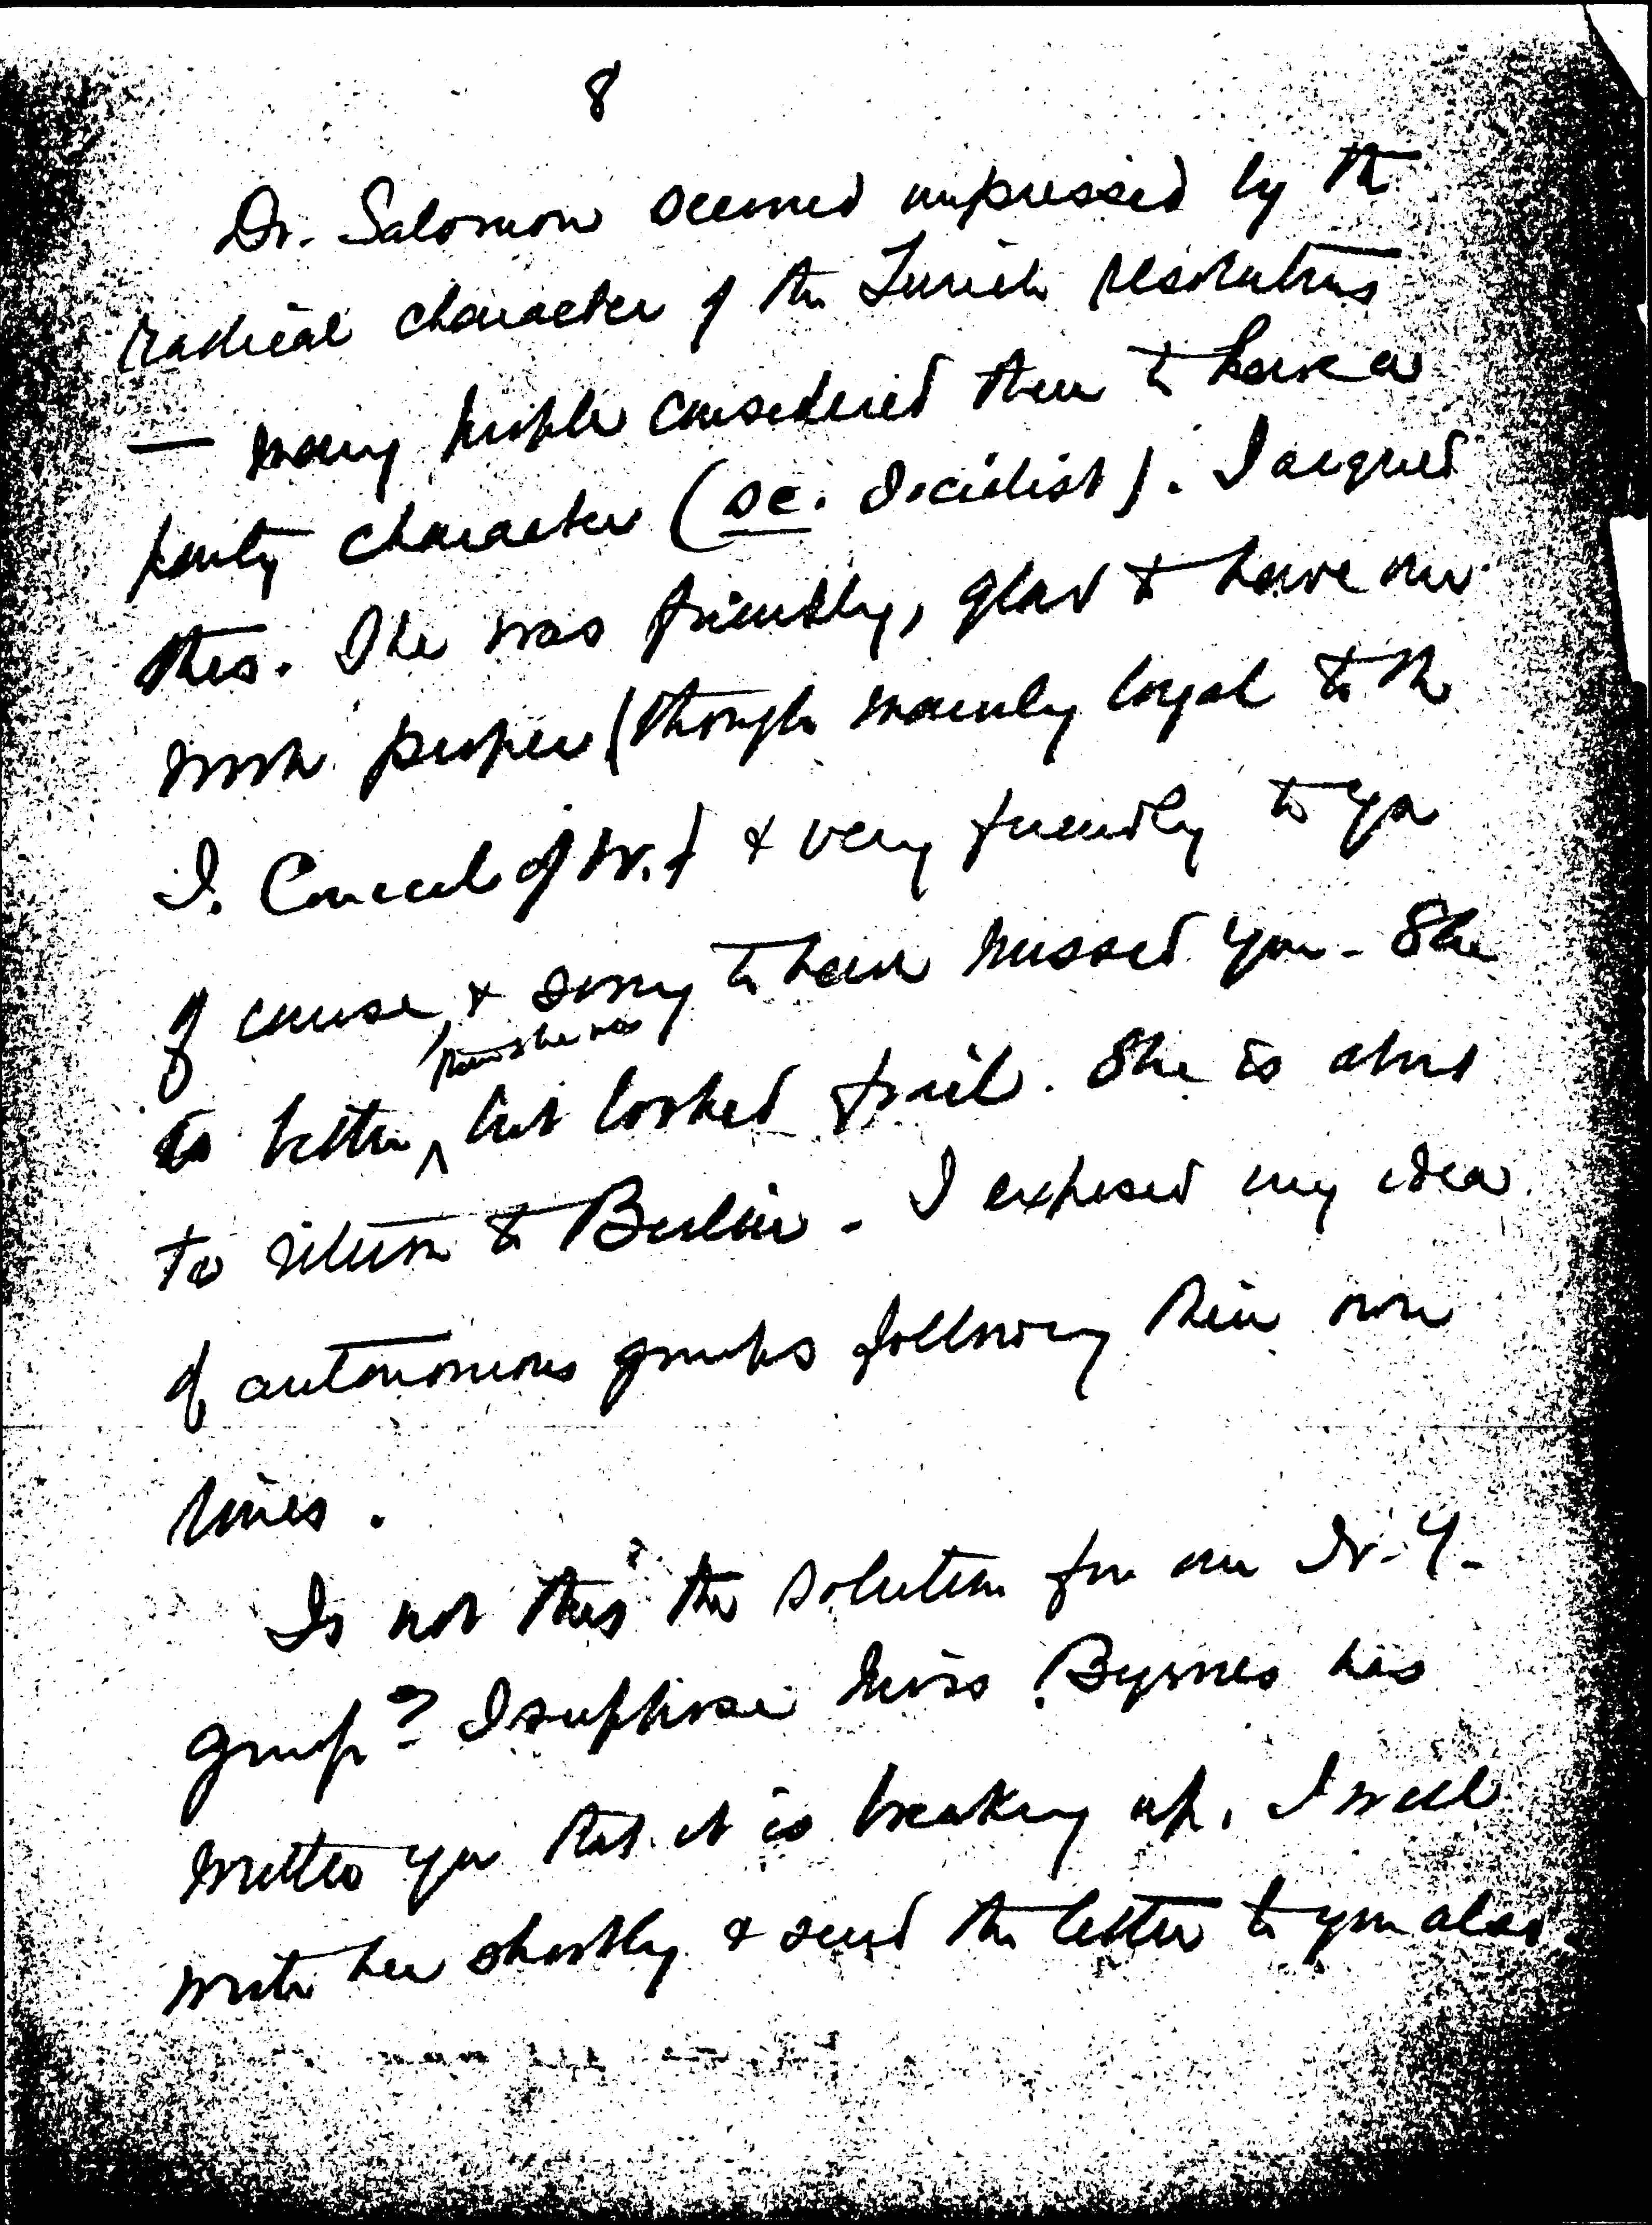 8
Dr. Salomon seemed impressed by the
radical character of the Zurich resolutions
— many people considered them to have a
party character (sc. Socialist). I argued
this. She was friendly, glad to have our
work prosper (though mainly loyal to the
I. Council of W.) & very friendly to you
of course, & sorry to have missed you - She
is better, than she was but looked frail. She is about
to return to Berlin - I exposed my idea
of autonomous groups following their own
lines.
Is not this the solution for our N.Y.
group? I suppose Miss Byrnes has
written you that it is breaking up. I will
write her shortly & send the letter to you also.